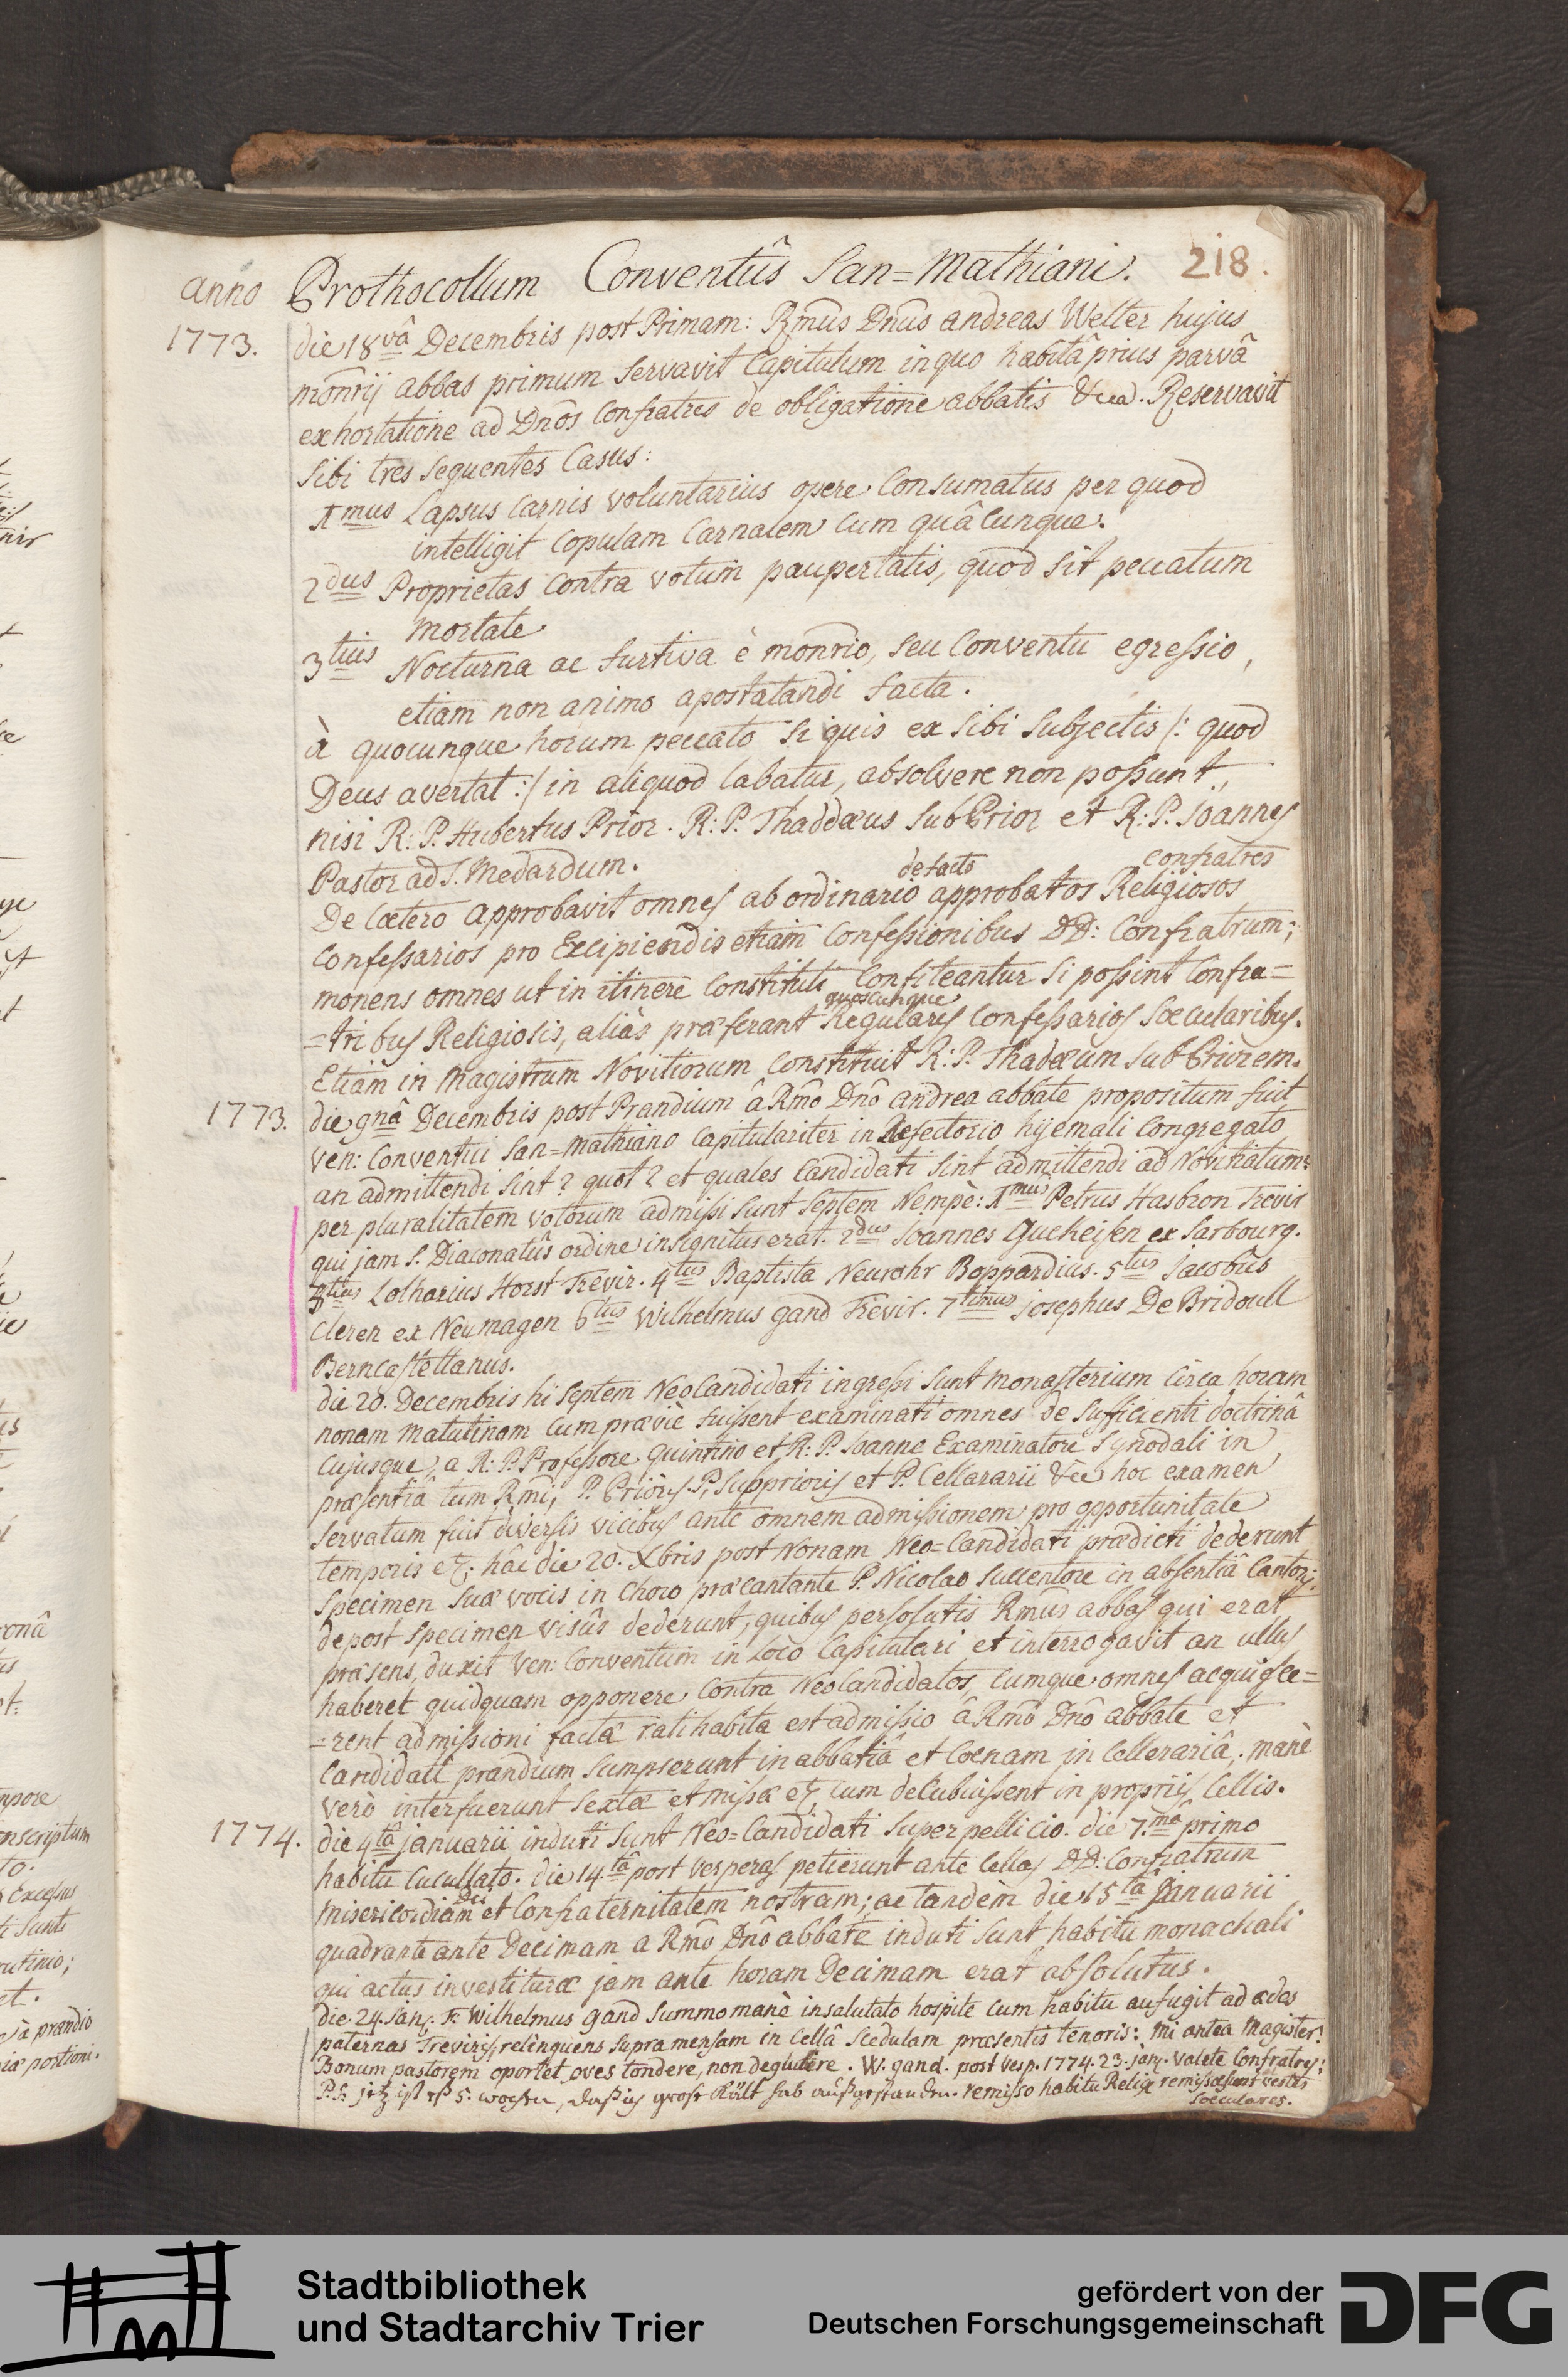 anno Prothocollum Conventûs San=Mathiani. 218.
1773. die 18vâ Decembris post Primam: Rmus Dnus andreas Welter hujus
monrij abbas primum servavit Capitulum in quo habitâ prius parvâ
exhortatione ad Dnos Confratres de obligatione abbatis &cca. Reservavit
sibi tres sequentes Casus:
1mus Lapsus Carnis voluntarius opere Consumatus per quod
intelligit Copulam Carnalem Cum quâCunque.
2dus Proprietas Contra votum paupertatis, quod sit peccatum
mortale
3tius Nocturna ac furtiva è monrio, seu Conventu egressio,
etiam non animo apostatandi facta.
à quocunque horum peccato si quis ex sibi subjectis /: quod
Deus avertat :/ in aliquod labatur, absolvere non possunt,
nisi R: P. Hubertus Prior. R: P. Thaddæus SubPrior et R: P. Joannes
Pastor ad S. Medardum.
de facto confratres
De Cætero approbavit omnes ab ordinario approbatos Religiosos
Confessarios pro Excipiendis etiam Confessionibus DD: Confratrum;
monens omnes ut in itinere Constituti Confiteantur si possint Confra=
quoscunque
=tribus Religiosis, aliàs præferant Regulares Confessarios Sæcularibus.
Etiam in Magistrum Novitiorum Constituit R: P. Thadæum SubPriorem.
1773. die 9nâ Decembris post Prandium â Rmô Dnô andrea abbate propositum fuit
ven: Conventui San=Mathiano Capitulariter in Refectorio hijemali Congregato
an admittendi sint? quot? et quales Candidati sint admittendi ad Novitiatum:
per pluralitatem votorum admissi sunt septem Nempè: 1mus Petrus Hasbron Trevir
qui jam S. Diaconatûs ordine insignitus erat. 2dus Joannes Gucheisen ex Sarbourg.
3tius Lotharius Horst Trevir. 4tus Baptista Neurohr Boppardius. 5tus Jacobus
Cleren ex Neumagen 6tus Wilhelmus gand Trevir. 7timus josephus De Bridoull
Berncastellanus.
die 20. Decembris hi septem NeoCandidati ingressi sunt monasterium Circa horam
nonam matutinam Cum præviè fuissent examinati omnes de sufficienti doctrinâ
Cujusque, a R: P. Professore Quintino et R: P. Joanne Examinatore Synodali in
præsentiâ tum Rmi, P. Prioris P. Supprioris et P. Cellararii &cc hoc examen
servatum fuit diversis vicibus ante omnem admissionem pro opportunitate
temporis etc: hâc die 20. Xbris post Nonam Neo=Candidati prædicti dederunt
Specimen suæ vocis in Choro præcantante P. Nicolao succentore in absentiâ Cantoris:
depost specimen visûs dederunt, quibus persolutis Rmus abbas qui erat
præsens, duxit Ven: Conventum in loco Capitulari et interrogavit an ullus
haberet quidquam opponere Contra NeoCandidatos, Cumque omnes acquisce=
=rent admissioni factæ ratihabita est admissio â Rmô Dnô abbate et
Candidati prandium sumpserunt in abbatiâ et Coenam in Cellerariâ. manè
verò interfuerunt sextæ et missæ etc cum deCubuissent in propriis Cellis.
1774. die 4tâ januarii induti sunt Neo=Candidati superpellicio. die 7.mâ primo
habitu Cucullato. die 14.tâ post vesperas petierunt ante Cellas DD: Confratrum
Dei
misericordiam et Confraternitatem nostram; ac tandèm die 15tâ Januarii
quadrante ante Decimam a Rmô Dnô abbate induti sunt habitu monachali
qui actus investituræ jam ante horam Decimam erat absolutus.
die 24. Janj: F. Wilhelmus gand summo manè insalutato hospite cum habitu aufugit ad ædes
paternas Treviris, relinquens supra mensam in Cellâ scedulam præsentis tenoris: Mi antea Magister!
Bonum pastorem oportet oves tondere, non deglutire. W. gand. post vesp. 1774. 23. janj. Valete Confratres!
P.S: jetz ist es 5: wochen, daß ich große Kält hab außgestanden. remisso habitu Religi remissæ sunt vestes
sæculares.
Stadtbibliothek
und Stadtarchiv Trier
gefördert von der
Deutschen Forschungsgemeinschaft
DFG